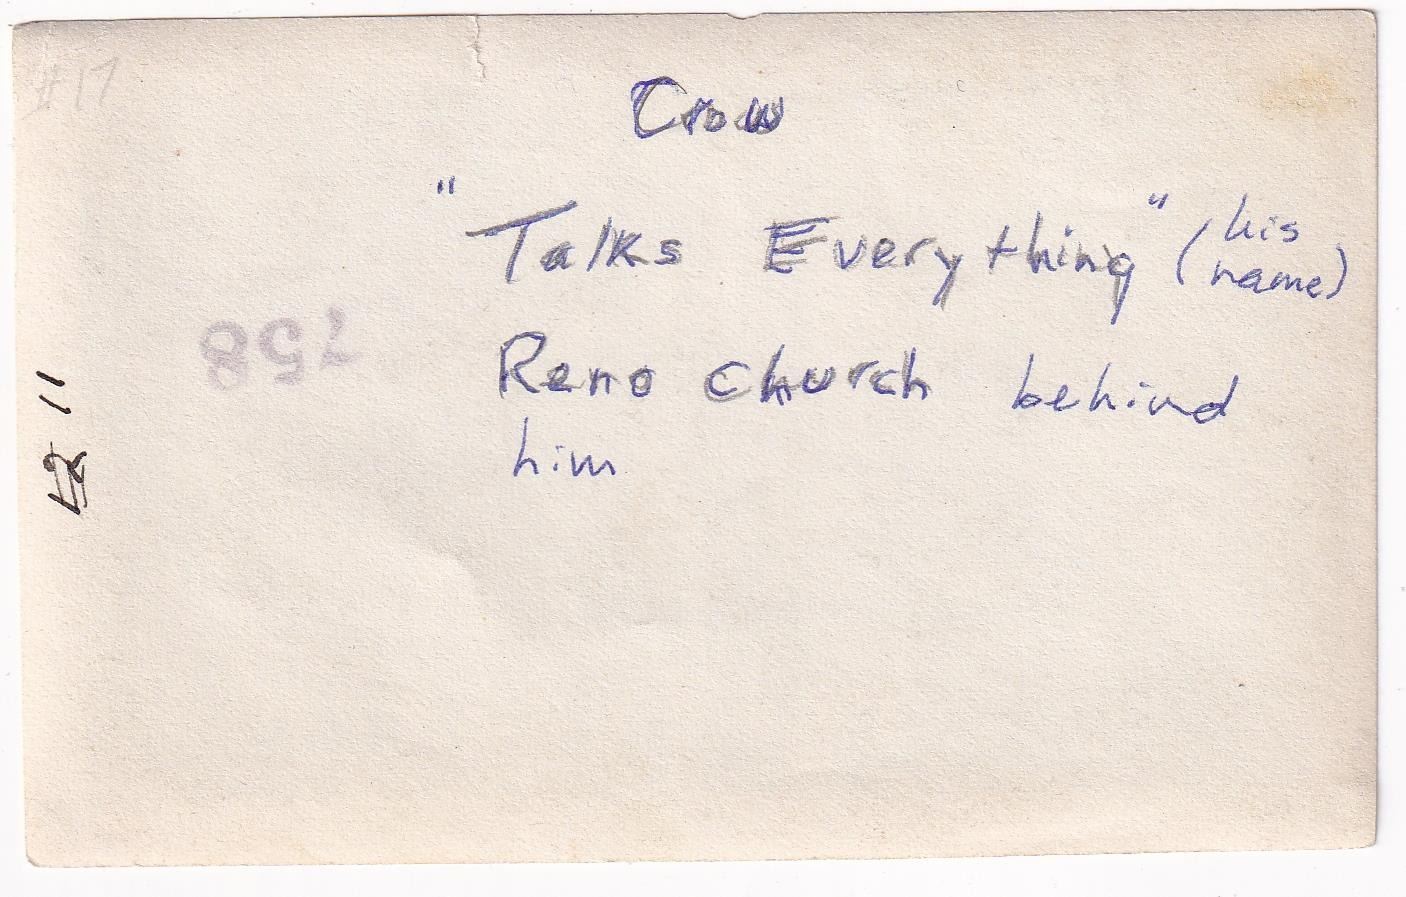 #17
Crow
"Talks Everything" (his name)
Reno church behind
him
758